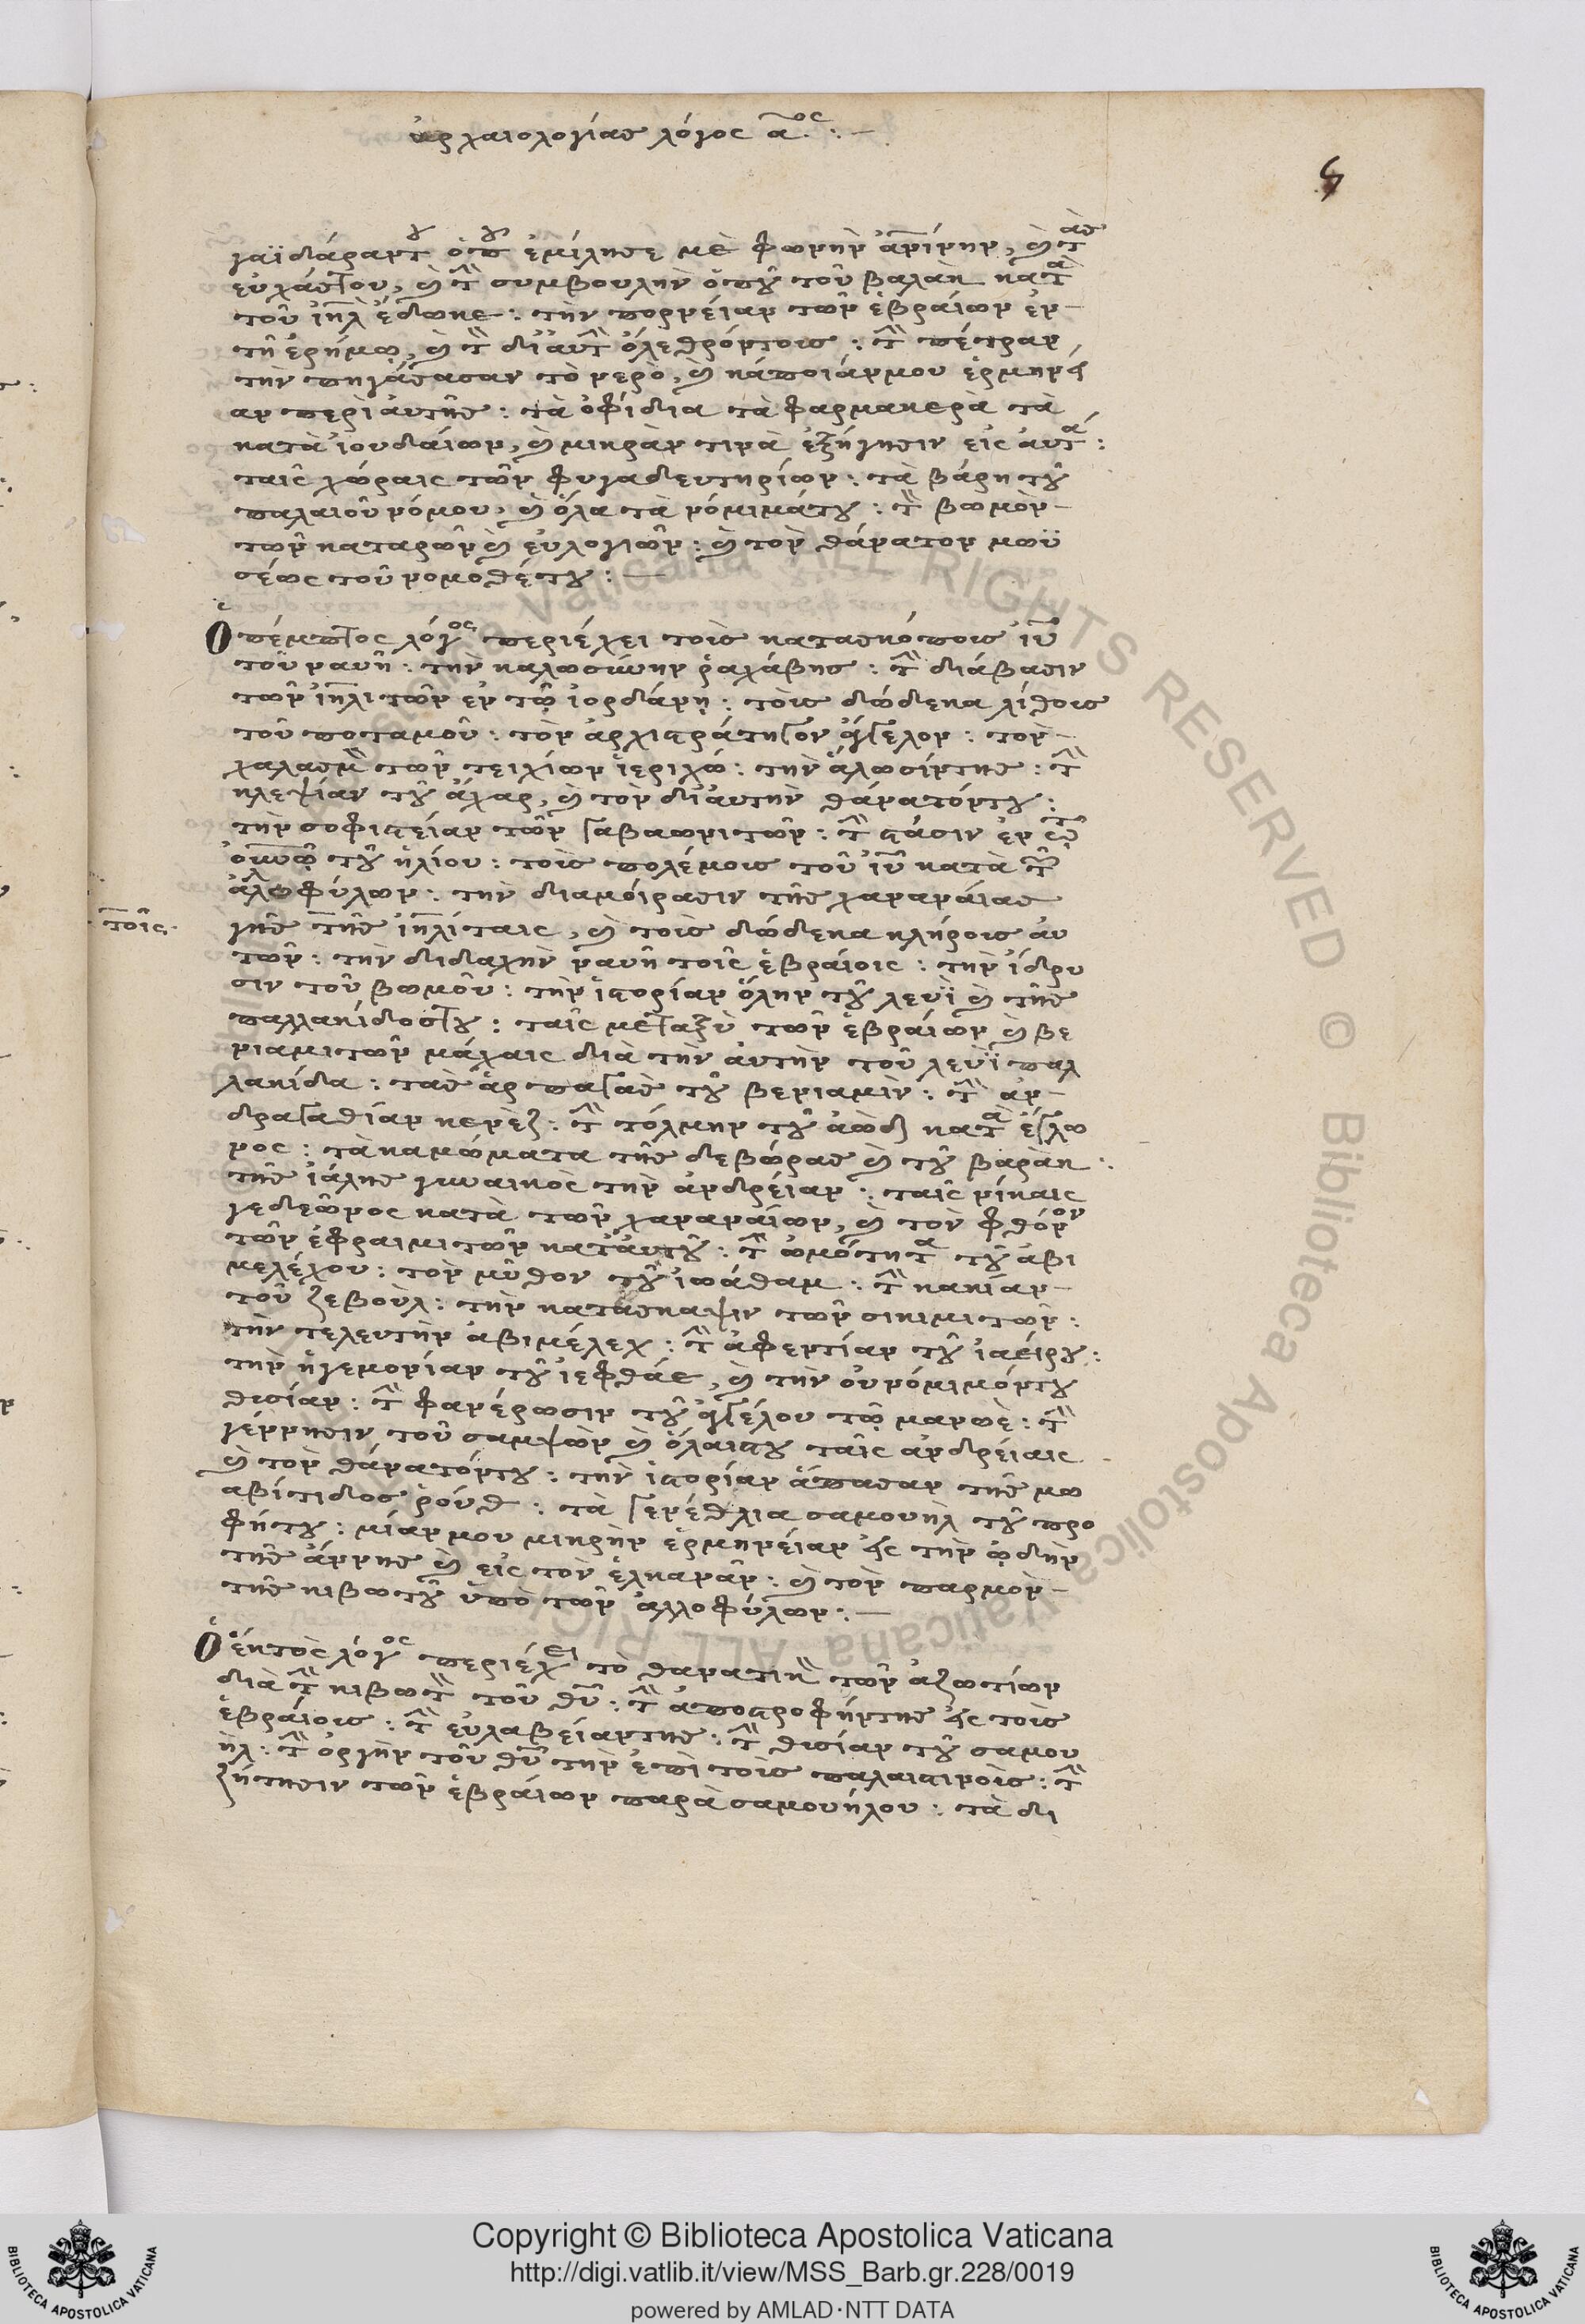 ἀρχαιολογίας λόγος αος :—
ς
γαϊδάραντου ὁποῦ ἐμίλησε μὲ φωνὴν ἀνθρωπίνην, καὶ τὰς
εὐχάς του, καὶ τὴν συμβουλὴν ὁποῦ τοῦ βαλὰκ κατὰ
τοῦ ἰηλ ἔδωκε : τὴν πορνείαν τῶν ἑβραίων ἐν
τῇ ἐρήμῳ, καὶ τὸν δι' αὐτὴν ὄλεθρόντους : τὴν πέτραν
τὴν πηγάσασαν τὸ νερὸ, καὶ κάποιάν μου ἑρμηνεί
αν περὶ αὐτῆς : τὰ ὀφίδια τὰ φαρμακερὰ τὰ
κατὰ ἰουδαίων, καὶ μικράν τινα ἐξήγησιν εἰς αὐτά :
ταῖς χώραις τῶν φυγαδευτηρίων : τὰ βάρη τοῦ
παλαιοῦ νόμου, καὶ ὅλα τὰ νόμιμάτου : τὸν βωμὸν
τῶν καταρῶν καὶ εὐλογιῶν : καὶ τὸν θάνατον μωϋ
σέως τοῦ νομοθέτου :—
Ὁ πέμπτος λόγος περιέχει τοὺς κατασκόπους ἰυ
τοῦ ναυῆ : τὴν καλωσύνην ῥαχάβης : τὴν διάβασιν
τῶν ἰηλιτῶν ἐν τῷ ἰορδάνῃ : τοὺς δώδεκα λίθους
τοῦ ποταμοῦ : τὸν ἀρχιστράτηγον ἄγγελον : τὸν
χαλασμὸν τῶν τειχίων ἱεριχώ : τὴν ἅλωσίντης : τὴν
κλεψίαν τοῦ ἄχαρ, καὶ τὸν δι' αὐτὴν θάνατόντου :
τὴν σοφιστείαν τῶν γαβαωνιτῶν : τὴν στάσιν ἐν τῷ
οὐνῷ τοῦ ἡλίου : τοὺς πολέμους τοῦ ἰυ κατὰ τῶν
ἀλλοφύλων : τὴν διαμοίρασιν τῆς χαναναίας
τοῖς
γῆς τῆς ἰηλίταις, καὶ τοὺς δώδεκα κλήρους αὐ
τῶν : τὴν διδαχὴν ναυῆ τοῖς ἑβραίοις : τὴν ἵδρυ
σιν τοῦ βωμοῦ : τὴν ἱστορίαν ὅλην τοῦ λευῒ καὶ τῆς
παλλακίδοστου : ταῖς μεταξὺ τῶν ἑβραίων καὶ βε
νιαμιτῶν μάχαις διὰ τὴν αὐτὴν τοῦ λευῒ παλ
λακίδα : τὰς ἁρπαγὰς τοῦ βενιαμίν : τὴν ἀν
δραγαθίαν κενὲζ : τὴν τόλμην τοῦ ἀὼδ κατὰ ἐγλῶ
νος : τὰ καμώματα τῆς δεβώρας καὶ τοῦ βαράκ :
τῆς ἰάλης γυναικὸς τὴν ἀνδρείαν : ταῖς νίκαις
γεδεῶνος κατὰ τῶν χαναναίων, καὶ τὸν φθόνον
τῶν ἐφραιμιτῶν κατ' αὐτοῦ : τὴν ὠμότητα τοῦ ἀβι
μελέχου : τὸν μῦθον τοῦ ἰωάθαμ : τὴν κακίαν
τοῦ ζεβούλ : τὴν κατάσκαψιν τῶν σικιμιτῶν :
τὴν τελευτὴν ἀβιμέλεχ : τὴν ἀφεντίαν τοῦ ἰαείρου :
τὴν ἡγεμονίαν τοῦ ἰεφθάε, καὶ τὴν οὐ νόμιμόντου
θυσίαν : τὴν φανέρωσιν τοῦ ἀγγέλου τῷ μανωέ : τὴν
γέννησιν τοῦ σαμψὼν καὶ ὅλαιστου ταῖς ἀνδρείαις
καὶ τὸν θάνατόντου : τὴν ἱστορίαν ἅπασαν τῆς μω
αβίτιδος ῥούθ : τὰ γενέθλια σαμουὴλ τοῦ προ
φήτου : μίαν μου μικρὴν ἑρμηνείαν εἰς τὴν ᾠδὴν
τῆς ἄννης καὶ εἰς τὸν ἑλκανᾶν : καὶ τὸν παρμὸν
τῆς κιβωτοῦ ὑπὸ τῶν ἀλλοφύλων :—
Ὁ ἕκτος λόγος περιέχει τὸ θανατικὸν τῶν ἀζωτίων
διὰ τὴν κιβωτὸν τοῦ θυ : τὴν ἀποστροφήντης εἰς τοὺς
ἑβραίους : τὴν εὐλαβείαντης : τὴν θυσίαν τοῦ σαμου
ὴλ : τὴν ὀργὴν τοῦ θυ τὴν ἐπὶ τοὺς παλαιστινούς : τὴν
ζήτησιν τῶν ἑβραίων παρὰ σαμουήλου : τὰ δι
Copyright © Biblioteca Apostolica Vaticana
http://digi.vatlib.it/view/MSS_Barb.gr.228/0019
powered by AMLAD·NTT DATA